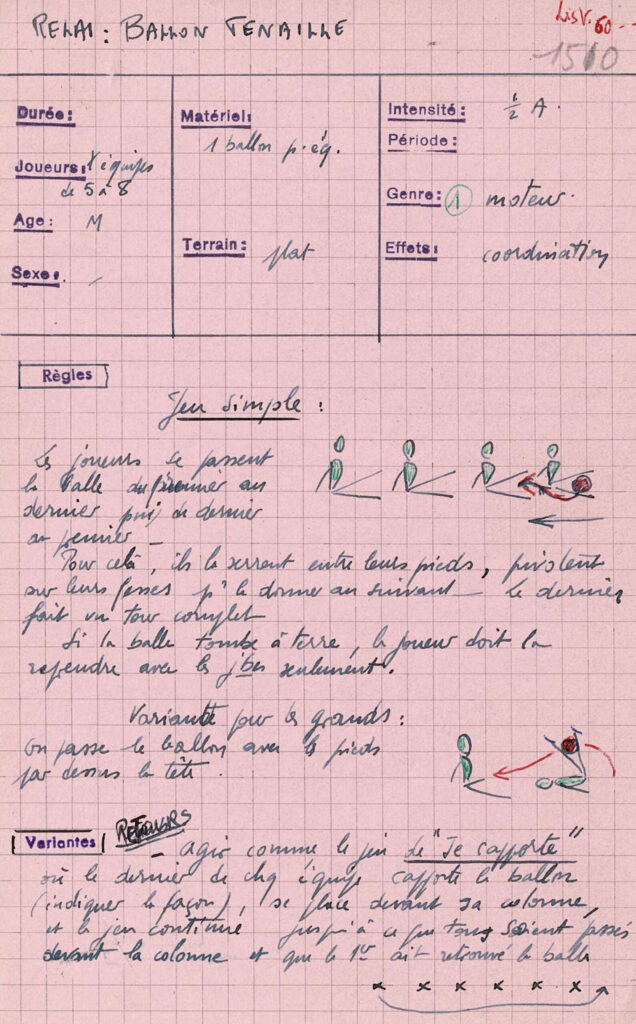 RELAI : BALLON TENAILLE
List. 60
1510
Durée :
Joueurs : équipes
de 5 à 8
Age : M
Sexe :
Matériel :
1 ballon p. éq.
Terrain : plat
Intensité : ½ A.
Période :
Genre : 1 moteur.
Effets : coordination
Règles
Jeu simple :
Les joueurs se passent
la balle du premier au
dernier puis du dernier
au premier –
Pour celà, ils la serrent entre leurs pieds, pivotent
sur leurs fesses pr la donner au suivant – Le dernier
fait un tour complet
Si la balle tombe à terre, le joueur doit la
reprendre avec les jbes seulement.
Variante pour les grands :
On passe le ballon avec les pieds
par dessus la tête.
Variantes
RELAIS
– agir comme le jeu de "Je rapporte"
où le dernier de chq équipe rapporte le ballon
(indiquer la façon), se place devant sa colonne,
et le jeu continue jusqu'à ce que tous soient passés
devant la colonne et que le 1er ait retrouvé la balle
x x x x x x